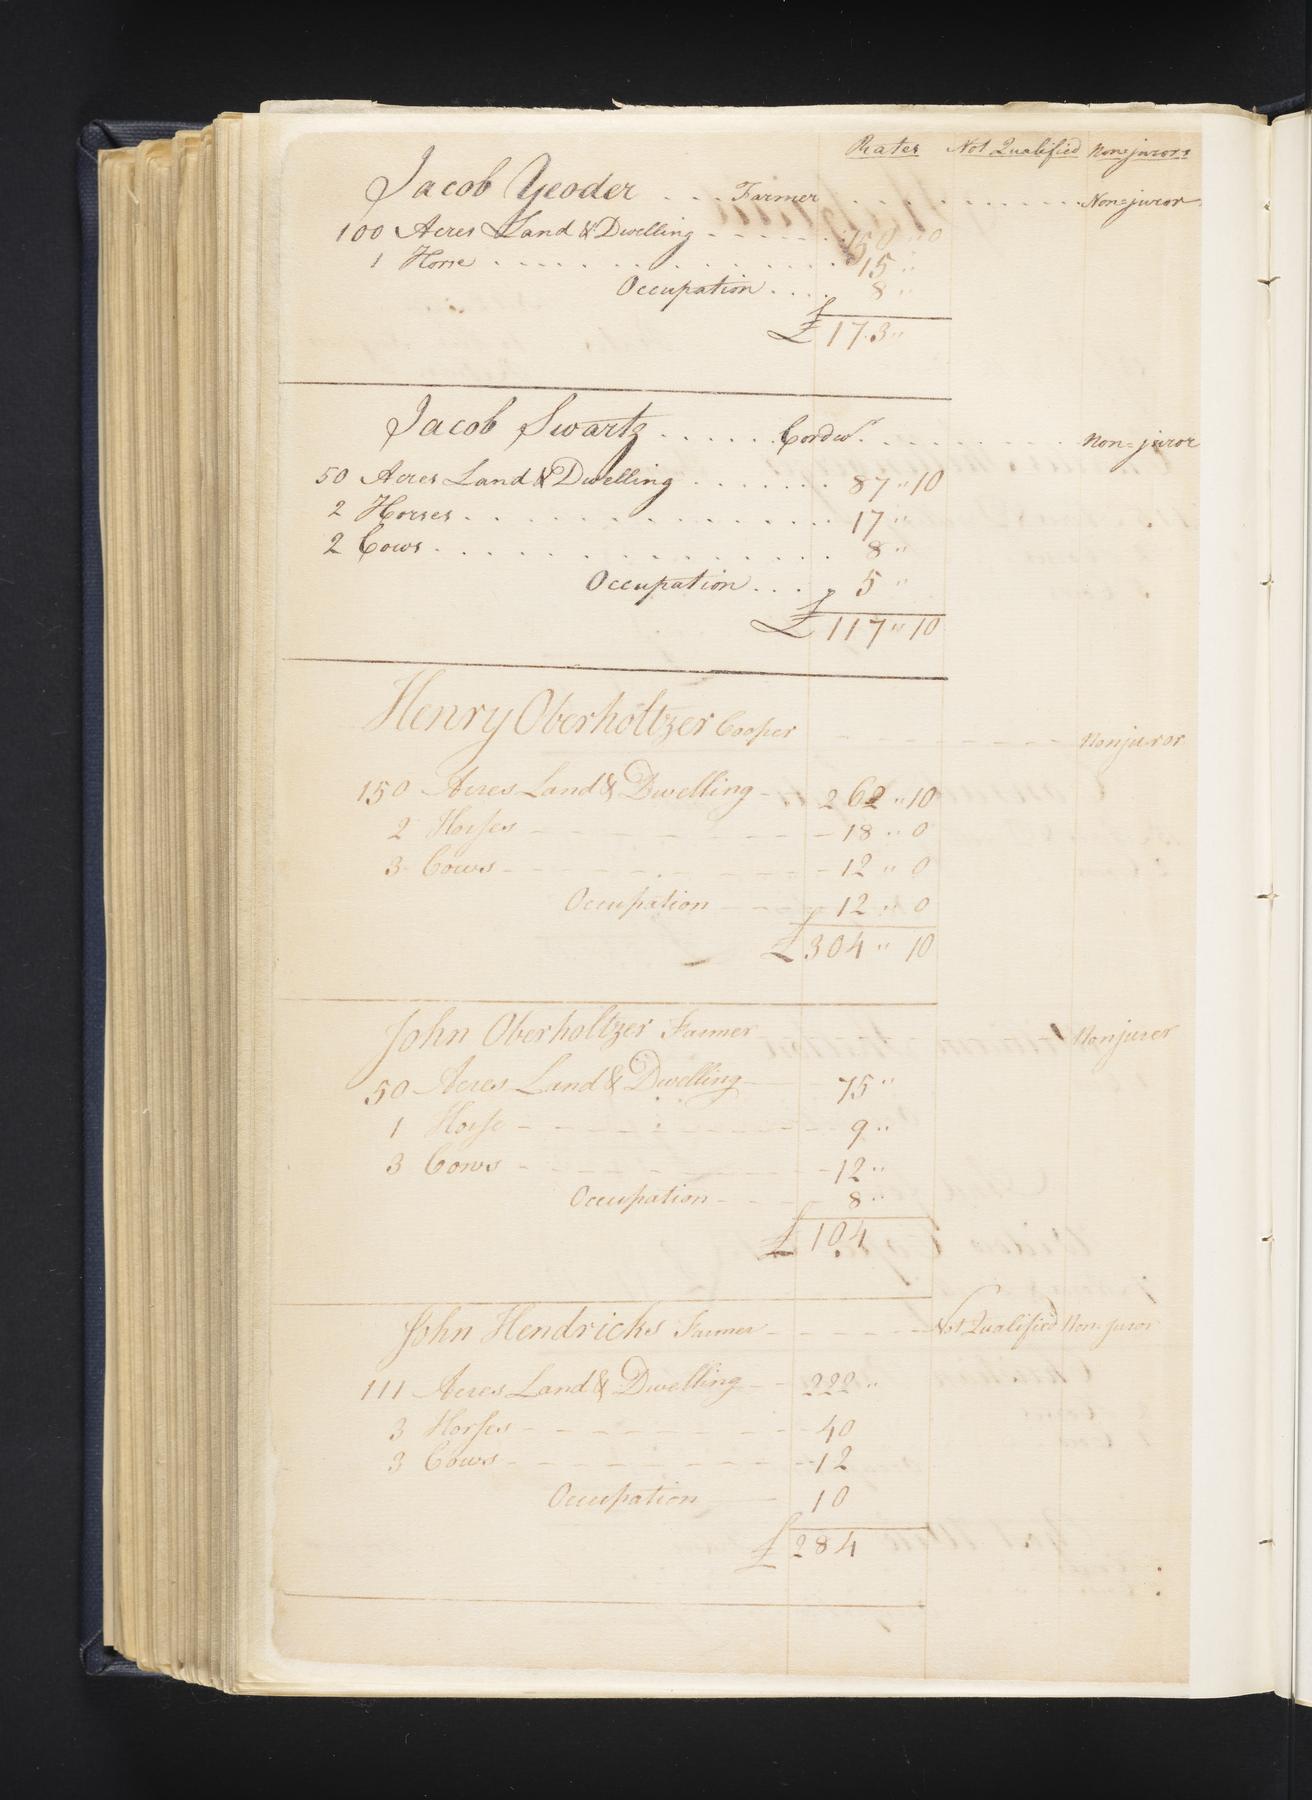 Rates Not Qualified Non=jurors
Jacob Yeoder . . . Farmer . . . . . . . . . Non=juror
100 Acres Land & Dwelling - - - - - - 150 " 0
1 Horse . . . . . . . . . . . . . . 15 "
Occupation . . . . 8 "
£ 173 "
Jacob Swartz . . . . . Cordwr. . . . . . . . . . Non=juror
50 Acres Land & Dwelling . . . . . . . 87 " 10
2 Horses . . . . . . . . . . . . . . . 17 "
2 Cows . . . . . . . . . . . . . . . . 8 "
Occupation . . . . 5 "
£ 117 " 10
Henry Oberholtzer Cooper - - - - - - Nonjuror
150 Acres Land & Dwelling - 262 " 10
2 Horses - - - - - - - - - - 18 " 0
3 Cows - - - - - - - - - 12 " 0
Occupation - - - - 12 " 0
£ 304 " 10
John Oberholtzer Farmer Nonjuror
50 Acres Land & Dwelling - 75 "
1 Horse - - - - - - - - - 9 "
3 Cows - - - - - - - - 12 "
Occupation - - - - 8 "
£ 104
John Hendricks Farmer - - - - - - Not Qualified Non=juror
111 Acres Land & Dwelling - - 222 "
3 Horses - - - - - - - - - 40
3 Cows - - - - - - - - - 12
Occupation - 10
£ 284